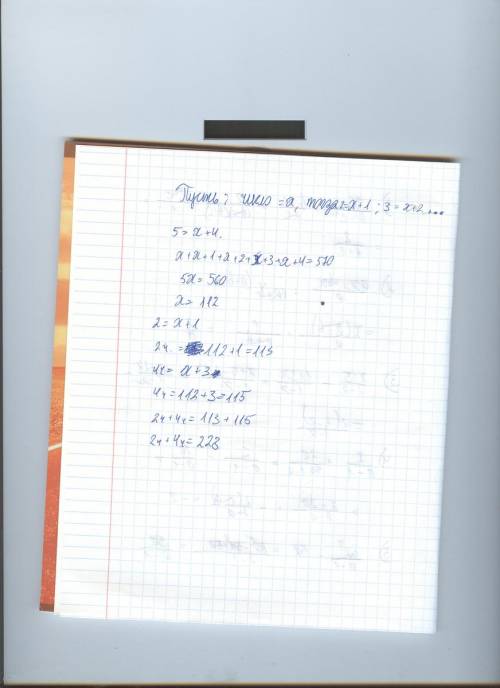 Пусть: число = x, тогда 2=x+1; 3=x+2....
5=x+4.
x+x+1+x+2+x+3+x+4=570
5x=560
x=112
2=x+1
2ч = 112+1=113
4ч= x+3
4ч=112+3=115
2ч+4ч=113+115
2ч+4ч=228